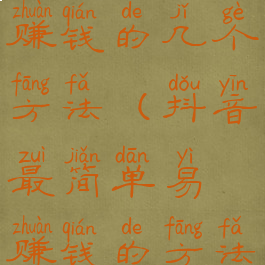 zhuàn qián de jǐ gè
赚钱的几个
fāng fǎ dǒu yīn
方法（抖音
zuì jiǎn dān yì
最简单易
zhuàn qián de fāng fǎ
赚钱的方法